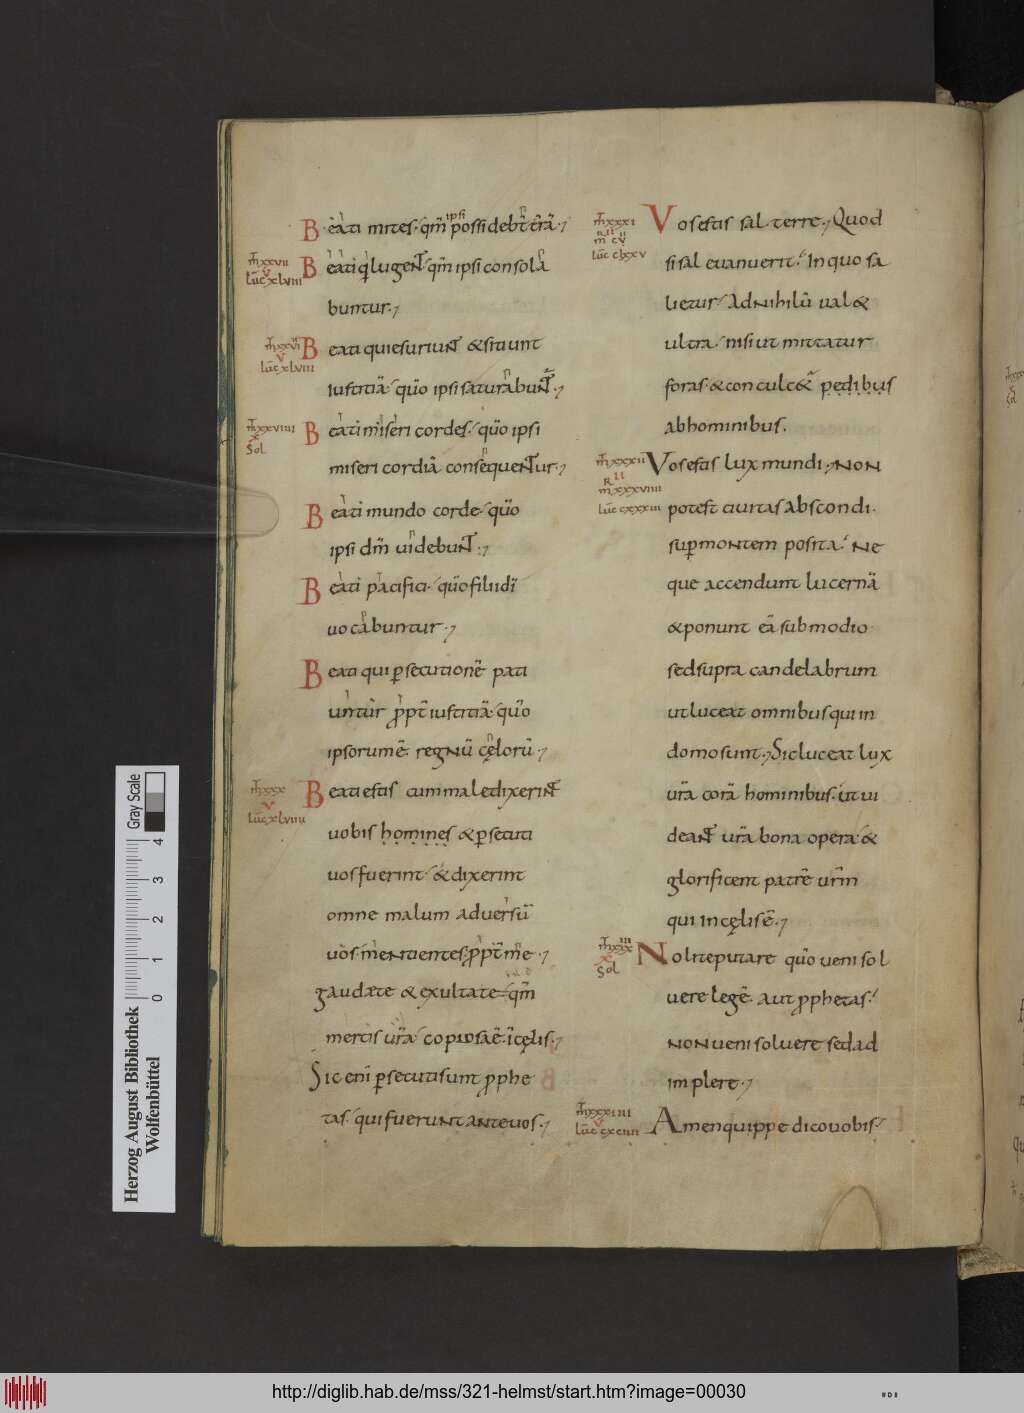 Beati mites· qm̄ ipsi possidebt̄ tr̄ā·
Beati qi lugent· qm̄ ipsi consola
buntur·
Beati qui esuriunt & sitiunt
iustitiā· qūo ipsi saturabunt̄·
Beati miseri cordes· qūo ipsi
miseri cordiā consequentur·
Beati mundo corde· qūo
ipsi dm̄ uidebunt·
Beati pacifici· qūo filii dī
uocabuntur·
Beati qui psecutionē pati
untur ppt̄ iustitiā· qūo
ipsorum ē· regnū cęlorū·
Beati estis cum maledixerint
uobis homines & psecuti
uos fuerint· & dixerint
omne malum aduersū
uos· mentientes· ppt̄ me·
gaudæte & exultate· qm̄
mercis ūra copiosa ē· ī cęlis·
Sic enī psecuti sunt pphe
tas· qui fuerunt ante uos·
m̄ xxvii
v
lūc xlviii
m̄ xxvi
v
lūc xlviii
m̄ xxviiii
x
Sol
m̄ xxx
v
lūc xlviiii
Vos estis sal terre· Quod
si sal euanuerit· In quo sa
lietur· Ad nihilū ual&
ultra· nisi ut mittatur
foras· & conculc&ur pedibus
ab hominibus·
Vos estis lux mundi· Non
potest ciuitas abscondi·
sup montem posita· Ne
que accendunt lucernā
& ponunt eā sub modio
sed supra candelabrum
ut luceat omnibus qui in
domo sunt· Sic luceat lux
ūra corā hominibus· ut ui
deant ūra bona opera· &
glorificent patrē urm̄
qui in cęlis ē·
Nolite putare qūo ueni sol
uere legē· aut pphetas·
non ueni soluere sed ad
implere·
Amen quippe dico uobis·
m̄ xxxi
ii
m cv
lūc clxxv
m̄ xxxii
ii
m xxxviiii
lūc cxxxiii
m̄ xxxiii
x
Sol
m̄ xxxiiii
v
lūc cxciiii
Herzog August Bibliothek
Wolfenbüttel
Gray Scale
0 1 2 3 4
http://diglib.hab.de/mss/321-helmst/start.htm?image=00030